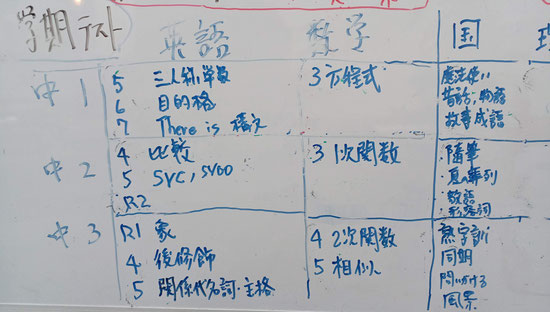 学期テスト 英語 数学 国
中1
5 三人称・単数
6 目的格
7 There is 構文
3 方程式
魔法使い
昔話・物語
故事成語
中2
4 比較
5 SVC, SVOO
R2
3 1次関数
・随筆
・夏の葬列
・敬語
・形容詞
中3
R1 象
4 後修飾
5 関係代名詞・主格
4 2次関数
5 相似
熟字訓
同期
問いかける
風景